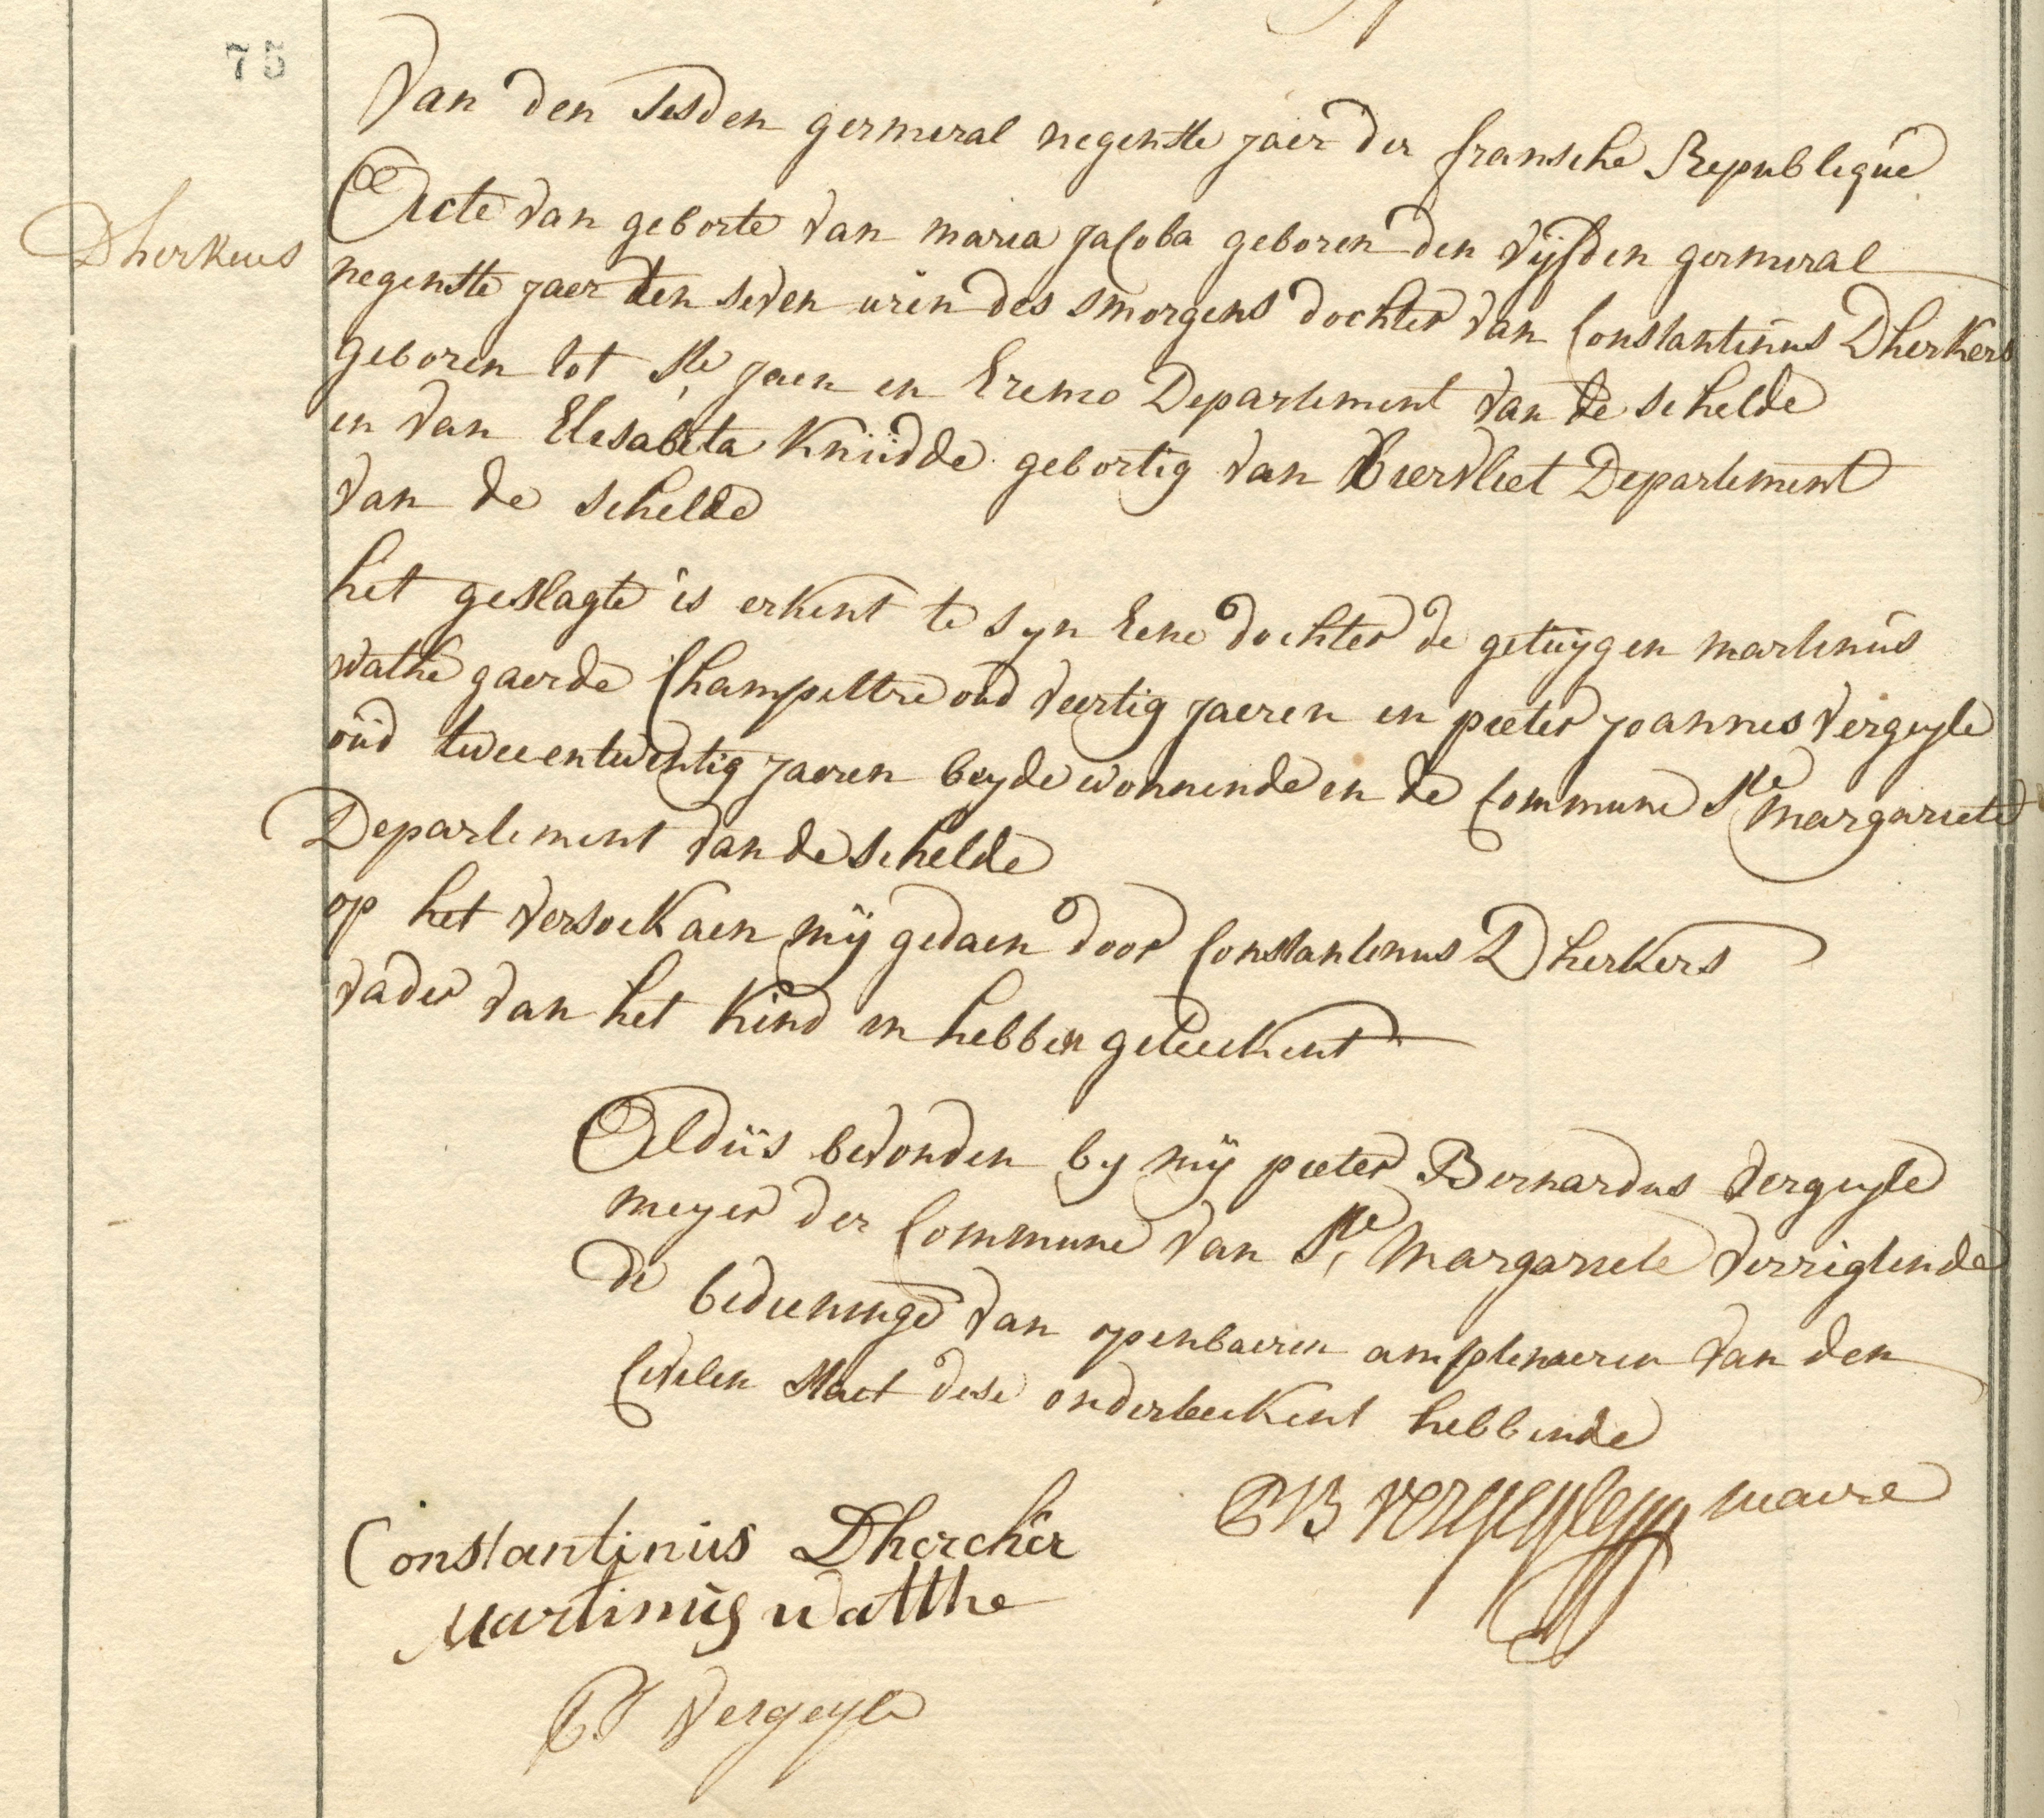 75
Van den sesden germinal negenste jaer der fransche Republique
Dherkers
Acte van geborte van maria jacoba geboren den vijfden germinal
negenste jaer ten seven uren des smorgens dochter van Constantinus Dherkers
geboren tot Ste jaen in Eremo Departement van de schelde
en van Elisabeta Knüdde gebortig van Biervliet Departement
van de schelde
het geslagte is erkent te syn Eene dochter de getuijgen martinus
wathe gaerde Champettre oud veertig jaeren en pieter joannes vergeyle
oud tweentwentig jaeren beyde wonnende en de Commune Ste margariete
Departement van de schelde
op het versoek aen mij gedaen door Constantinus Dherkers
vader van het Kind en hebben geteekent
Aldus bevonden by mij pieter Bernardus vergeyle
meyer der Commune van Ste margariete verrigtende
de bedieninge van openbaeren amptenaeren van den
Civilen staet dese onderteekent hebbende
PB vergeyle maire
Constantinus Dhercher
Martinus watthe
PJ Vergeyle